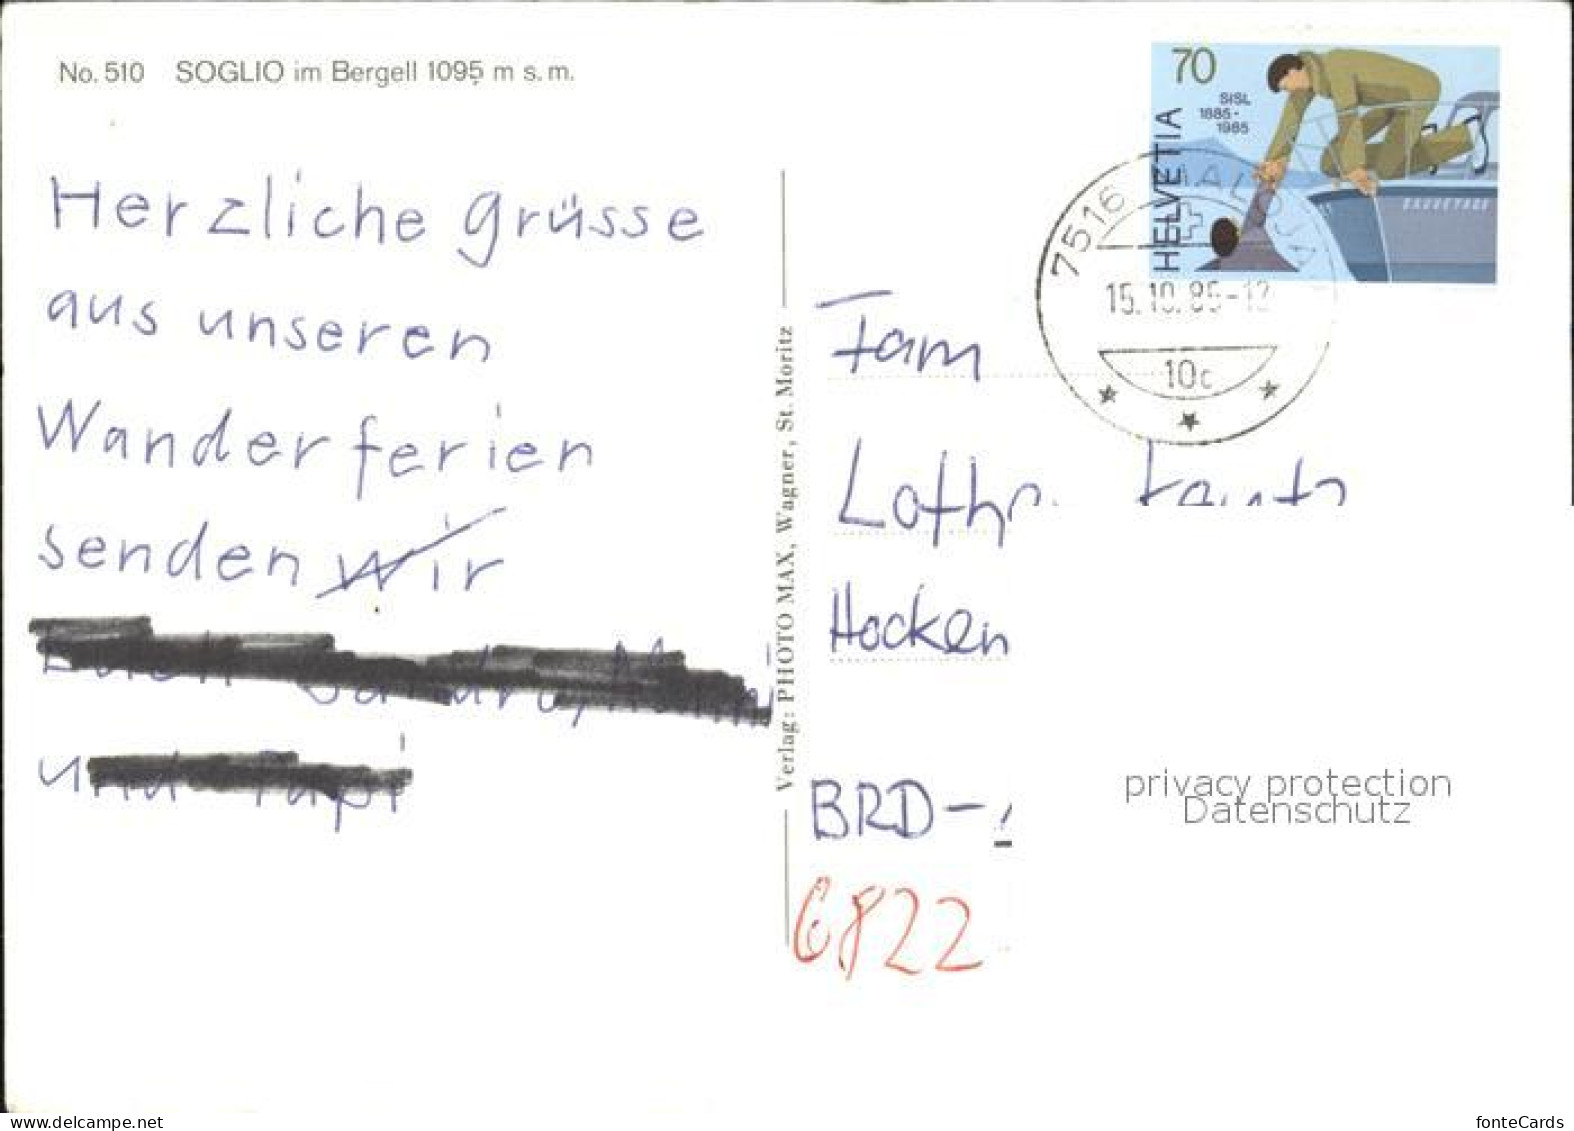 No. 510 SOGLIO im Bergell 1095 m s.m.
Herzliche grüsse
aus unseren
Wanderferien
senden wir
und
Verlag: PHOTO MAX, Wagner, St. Moritz
70
HELVETIA
SISL
1885-
1985
SAUVETAGE
7516 MALOJA
15.10.85-12
10c
Fam
Hocken
BRD-
6822
privacy protection
Datenschutz
www.delcampe.net
fonteCards